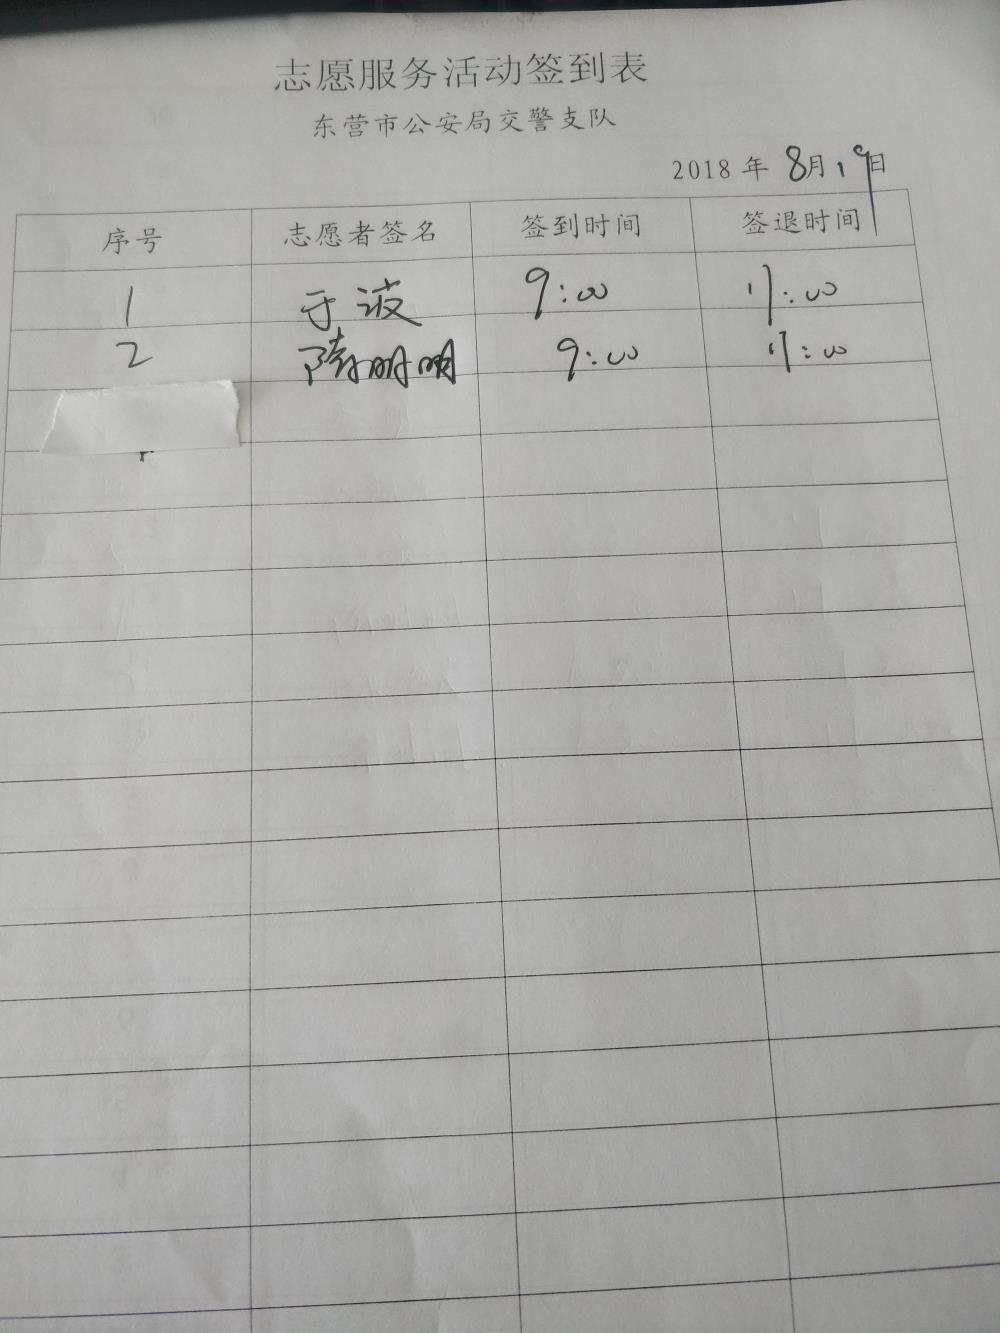 志愿服务活动签到表
东营市公安局交警支队
2018年 8月19日
序号 志愿者签名 签到时间 签退时间
1 于波 9:00 11:00
2 隋明明 9:00 11:00